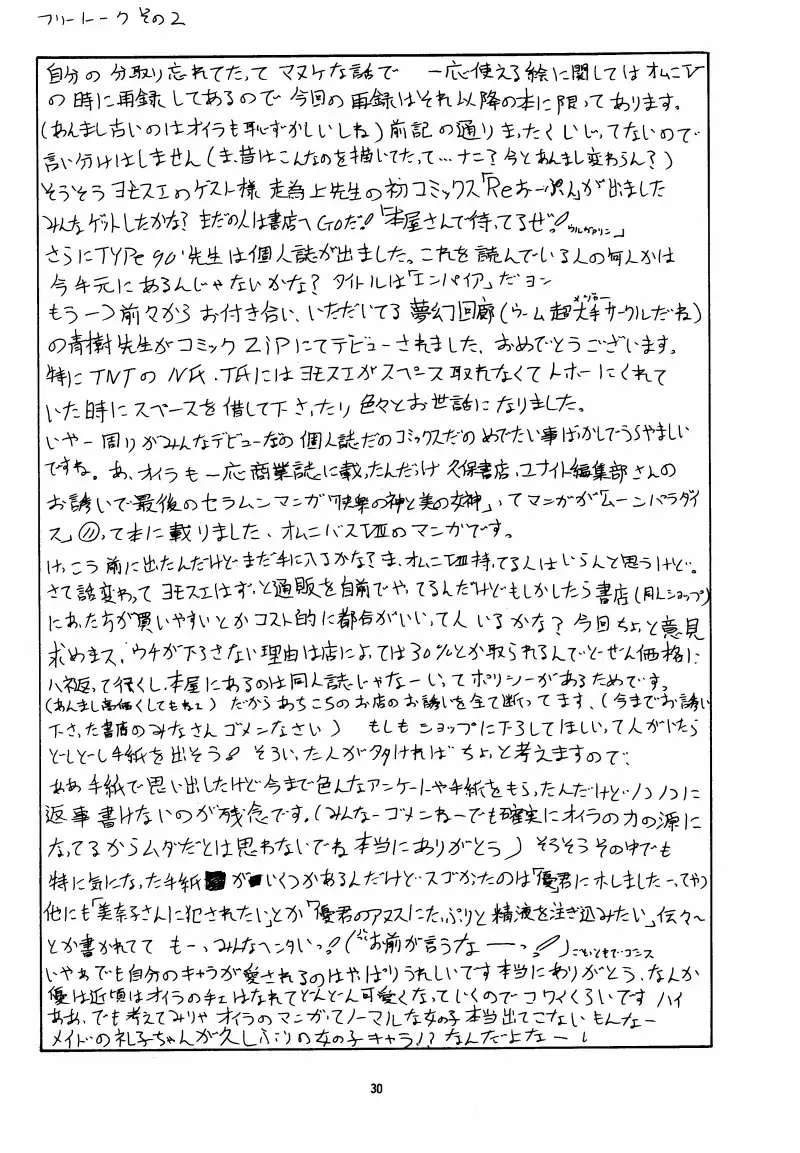 フリートーク その2
自分の分取り忘れてた、てマヌケな話で 一応使える絵に関してはオムニⅣ
の時に再録してあるので今回の再録はそれ以降の本に限ってあります。
(あんまし古いのはオイラも恥ずかしいしね)前記の通りまったくいじってないので
言い分けはしません(ま、昔はこんなのを描いてたって…ナニ?今とあんまし変わらん?)
そうそうヨモスエのゲスト様 走為上先生の初コミックス「Reおーぷん」が出ました
みんなゲットしたかな?まだの人は書店へGoだ!「本屋さんで待ってるぜ!ウルヴァリン」
さらにTYPe90'先生は個人誌が出ました。これを読んでいる人の何人かは
今手元にあるんじゃないかな?タイトルは「エンパイア」だヨン
もう一つ前々からお付き合い、いただいてる夢幻回廊(ウーム超大手サークルだね)
の青樹先生がコミックZiPにてデビューされました、おめでとうございます。
特にTNTのNF.TFにはヨモスエがスペース取れなくてトホーにくれて
いた時にスペースを借して下さったり色々とお世話になりました。
いやー周りがみんなデビューなの個人誌だのコミックスだのめでたい事ばかしでうらやましい
ですね。あ、オイラも一応商業誌に載ったんだっけ 久保書店、ユナイト編集部さんの
お誘いで最後のセラムンマンガ「快楽の神と美の女神」ってマンガが「ムーンパラダイ
ス」⑪って本に載りました、オムニバスⅧのマンガです。
けっこう前に出たんだけどまだ手に入るかな?ま、オムニⅧ持ってる人はいらんと思うけど。
さて話変わってヨモスエはずっと通販を自前でやってるんだけどもしかしたら書店(同人ショップ)
にあった方が買いやすいとかコスト的に都合がいいって人いるかな?今回ちょっと意見
求めまス、ウチが下ろさない理由は店によっては30%とか取られるんでとーぜん価格に
ハネ返って行くし、本屋にあるのは同人誌じゃなーいってポリシーがあるためです。
(あんまし高価くしてもねェ)だからあちこちのお店のお誘いを全て断ってます、(今までお誘い
下さった書店のみなさんゴメンなさい) もしもショップに下ろしてほしいって人がいたら
どしどし手紙を出そう! そういった人がタタければちょっと考えますので、
ああ手紙で思い出したけど今まで色んなアンケートや手紙をもらったんだけどノコノコに
返事書けないのが残念です。(みんなーゴメンねーでも確実にオイラの力の源に
なってるからムダだとは思わないでね本当にありがとう)そうそうその中でも
特に気になった手紙がいくつかあるんだけどスゴかったのは「優君にホしました」ってやつ
他にも「美奈子さんに犯されたい」とか「優君のアヌスにたっぷりと精液を注ぎ込みたい」伝々~
とか書かれてて もーっみんなヘンタいっ!(お前が言うなーっ!)
いやぁでも自分のキャラが愛されるのはやっぱりうれしいです本当にありがとう、なんか
優は近頃はオイラのテェはなれてどんどん可愛くなっていくのでコワイくらいです ハイ
ああ、でも考えてみりゃオイラのマンガってノーマルな女の子本当出てこないもんなー
メイドの礼子ちゃんが久しぶりの女の子キャラ!?なんだよなー
30